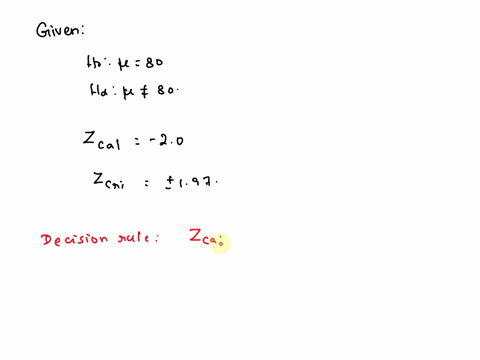 Given:
Ho: μ = 80
Ha: μ ≠ 80.
Zcal = -2.0
Zcri = ± 1.97.
Decision rule: Zca